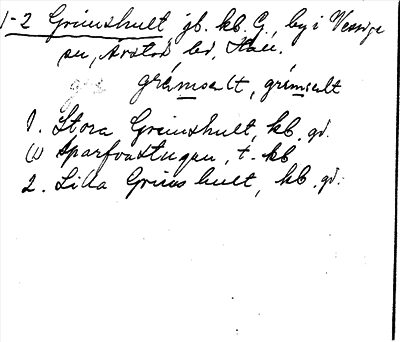 1-2 Grimshult jb. kb. G., by i Vessige
sn, Årstad hd, Hall.
grémsalt, grémsalt
1. Stora Grimshult, kb. gd.
(1) Sparfvastugan, t. kb
2. Lilla Grims hult, kb. gd.